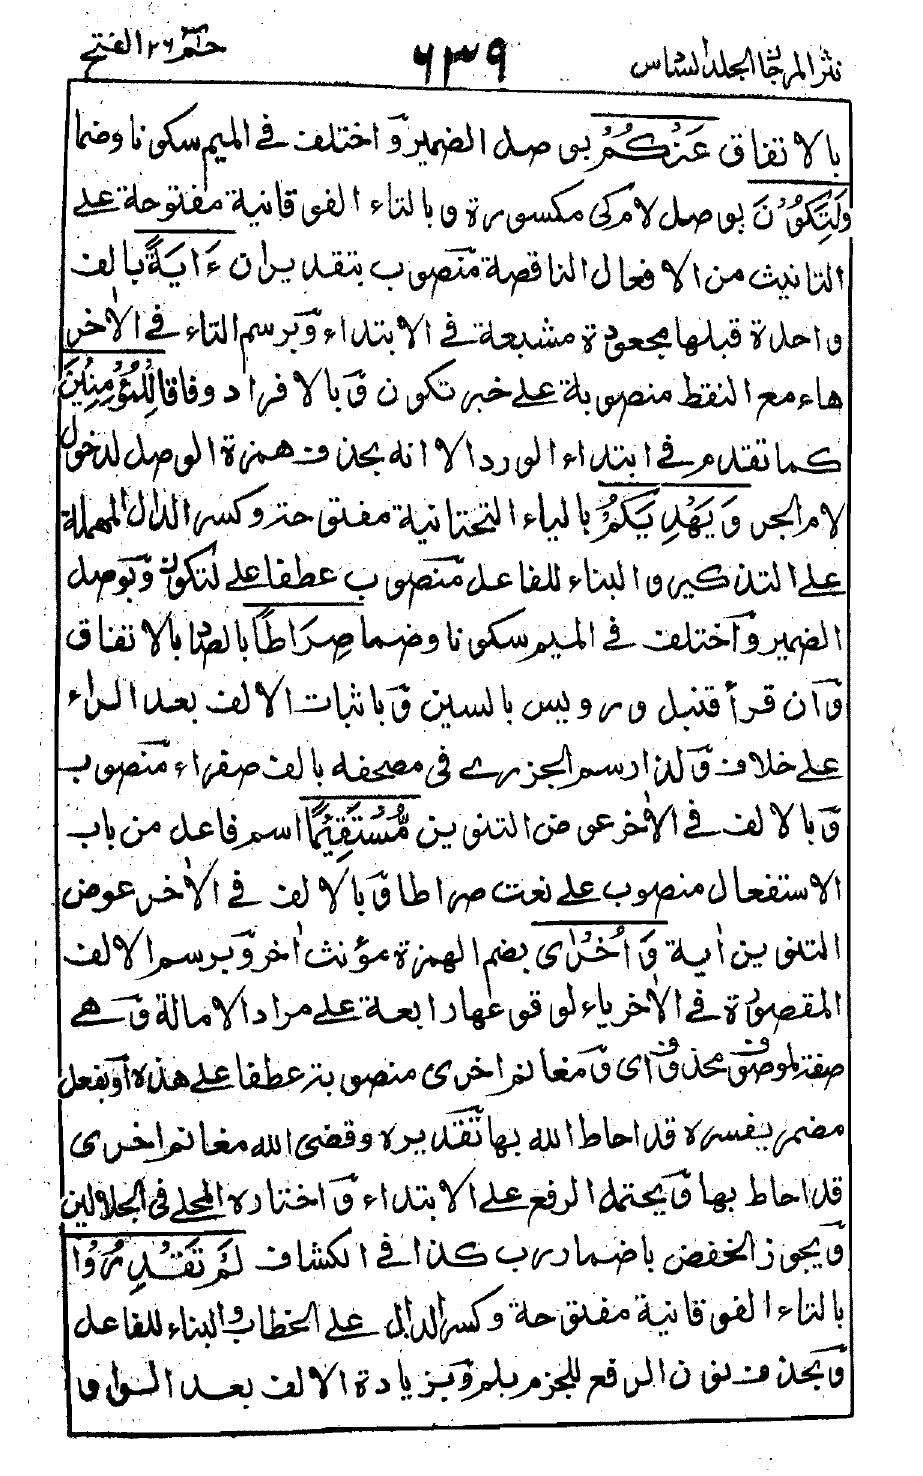 نثر المرجان الجلد السادس
٦٣٩
حٰم ٢٦ الفتح
بالاتفاق عَنْكُمْ بوصل الضمير وَاختلف فے الميم سكونا وضما
وَلِتَكُوْنَ بوصل لام كى مكسورة وبالتاء الفوقانية مفتوحة علے
التانيث من الافعال الناقصة مَنصوب بتقدير ان ءَايَةً بالف
واحدة قبلها مجعودة مشبعة فے الابتداء وَبرسم التاء فے الاٰخر
هاء مع النقط منصوبة علے خبر تكون وَبالافراد وفاقا لِلْمُؤْمِنِيْنَ
كما تقدم فے ابتداء الورد الا انه بحذف همزة الوصل لدخول
لام الجر وَيَهْدِيَكُمْ بالياء التحتانية مفتوحة وكسر الدال المهملة
علے التذكير والبناء للفاعل مَنصوب عطفا علے لتكون وَبوصل
الضمير وَاختلف فے الميم سكونا وضما صِرَاطًا بالصاد بالاتفاق
وَان قرأ قنبل ورويس بالسين وَباثبات الالف بعد الراء
علے خلاف وَلذا رسم الجزرے فى مصحفه بالف صفراء مَنصوب
وَبالالف فے الاٰخر عوض التنوين مُّسْتَقِيْمًا اسم فاعل من باب
الاستفعال منصوب علے نعت صراطا وَبالالف فے الاٰخر عوض
التنوين اٰية وَاُخْرٰى بضم الهمزة مؤنث اٰخر وَبرسم الالف
المقصورة فے الاٰخر ياء لوقوعها رابعة علے مراد الامالة وَهے
صفة لموصوف محذوف اى وَمغانم اخرى منصوبة عطفا علے هذه اَو بفعل
مضمر يفسره قد احاط الله بها تَقديره وقضى الله مغانم اخرى
قد احاط بها وَيحتمل الرفع علے الابتداء وَاختاره المحلے فى الجلالين
وَيجوز الخفض باضمار رب كذا فے الكشاف لَمْ تَقْدِرُوْا
بالتاء الفوقانية مفتوحة وكسر الدال علے الخطاب والبناء للفاعل
وَبحذف نون الرفع للجزم بلم وَبزيادة الالف بعد الواو